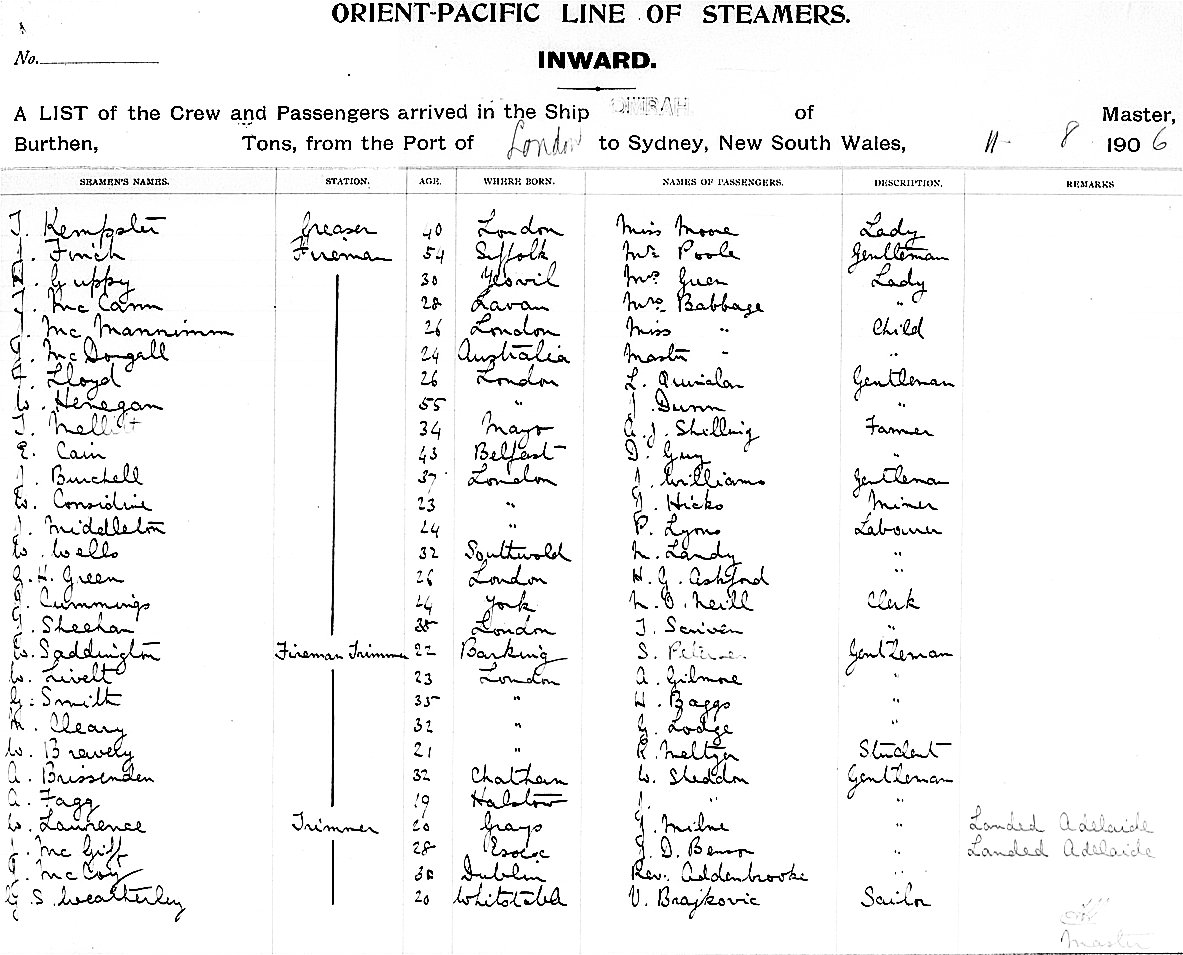 ORIENT-PACIFIC LINE OF STEAMERS.
No.
INWARD.
A LIST of the Crew and Passengers arrived in the Ship OMRAH of Master,
Burthen, Tons, from the Port of London to Sydney, New South Wales, 11- 8 1906
SEAMEN'S NAMES. STATION. AGE. WHERE BORN. NAMES OF PASSENGERS. DESCRIPTION. REMARKS
T. Kempster Greaser 40 London Miss Moore Lady
J. Finch Fireman 54 Suffolk Mr Poole Gentleman
Guppy 30 Yeovil Mrs Guen Lady
J. McCann 28 Lavan Mrs Babbage "
J. McMannimm 26 London Miss " Child
McDougall 24 Australia Master " "
Lloyd 26 London L. Quinlan Gentleman
W. Henegan 55 " J. Dunn "
T. Mellitt 34 Mayo A. J. Shilling Farmer
E. Cain 43 Belfast D. Guy "
J. Burchell 37 London J. Williams Gentleman
W. Considine 23 " J. Hicks Miner
J. Middleton 24 " P. Lyons Labourer
W. Wells 32 Southwold M. Landy "
G. H. Green 26 London H. G. Ashford "
J. Cummings 24 York M. O. Neill Clerk
J. Sheehan London T. Scriven "
W. Saddington Fireman Trimmer 22 Barking S. Gentleman
W. Livett 23 London A. Gilmore "
G. Smith 35 " H. Baggs "
M. Cleary 32 " G. Lodge "
W. Bravely 21 " R. Meltzer Student
A. Brissenden 32 Chatham W. Sheddon Gentleman
A. Fagg 19 Halstow J. " "
W. Laurence Trimmer 20 Grays J. Milne " Landed Adelaide
McGiff 28 Essex J. D. Benson " Landed Adelaide
McCoy 30 Dublin Rev. Addenbrooke "
G. S. Weatherley 20 Whitstable V. Brajkovic Sailor
Master